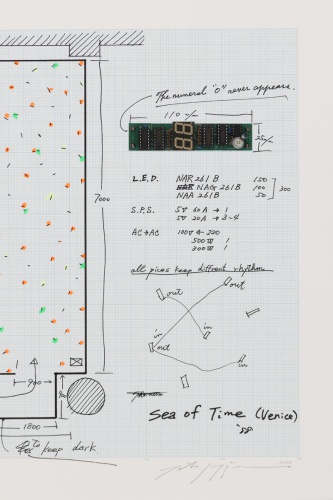 The numeral "0" never appears.
110 m/m
25 m/m
L.E.D. NAR 261B 150
NAG 261B 100
NAA 261B 50
300
S.P.S. 5V 60A → 1
5V 20A → 3~4
AC→AC 100V ← 220
500W 1
300W 1
7000
all pices keep diffrent rhythm
out
out
in
out
in
in
900
900
1800
To keep dark
Sea of Time (Venice)
'88